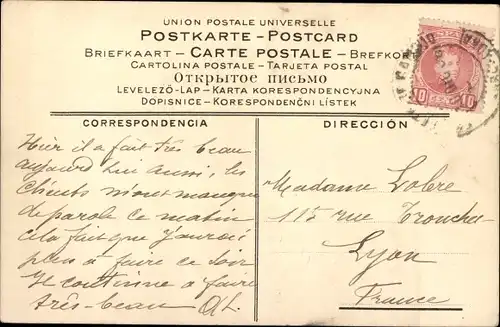 UNION POSTALE UNIVERSELLE
POSTKARTE - POSTCARD
BRIEFKAART - CARTE POSTALE - BREFKO
CARTOLINA POSTALE - TARJETA POSTAL
Открытое письмо
LEVELEZŐ-LAP - KARTA KORESPONDENCYJNA
DOPISNICE - KORESPONDENČNÍ LÍSTEK
10 10
CORRESPONDENCIA
DIRECCIÓN
Hier il a fait très beau
aujourd hui aussi, les
clients m'ont manqué
de parole ce matin
cela fait que j'aurai
peu à faire ce soir
Il continue à faire
très-beau AL.
Madame Lobre
115 rue Tronchet
Lyon
France